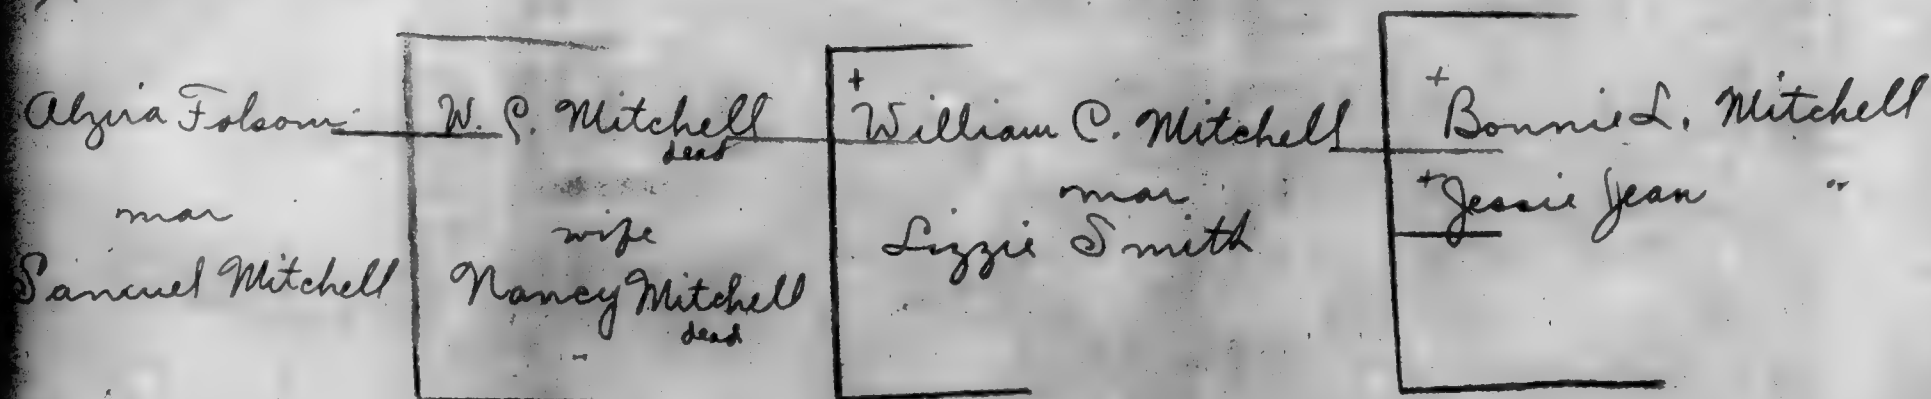 Alzira Folsom
mar
Samuel Mitchell
W. C. Mitchell
dead
wife
Nancy Mitchell
dead
+
William C. Mitchell
mar
Lizzie Smith
+Bonnie L. Mitchell
+Jessie Jean "